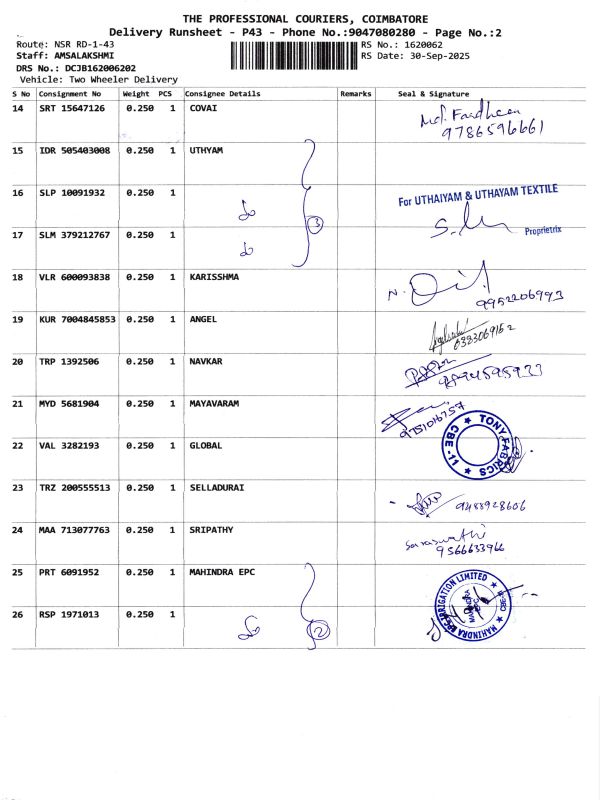 THE PROFESSIONAL COURIERS, COIMBATORE
Delivery Runsheet - P43 - Phone No.:9047080280 - Page No.:2
Route: NSR RD-1-43 RS No.: 1620062
Staff: AMSALAKSHMI RS Date: 30-Sep-2025
DRS No.: DCJB162006202
Vehicle: Two Wheeler Delivery
S No Consignment No Weight PCS Consignee Details Remarks Seal & Signature
14 SRT 15647126 0.250 1 COVAI Md. Fardheen
9786596661
15 IDR 505403008 0.250 1 UTHYAM
16 SLP 10091932 0.250 1 do 3 For UTHAIYAM & UTHAYAM TEXTILE
17 SLM 379212767 0.250 1 do Proprietrix
18 VLR 600093838 0.250 1 KARISSHMA N.
9952206993
19 KUR 7004845853 0.250 1 ANGEL
6383069152
20 TRP 1392506 0.250 1 NAVKAR
21 MYD 5681904 0.250 1 MAYAVARAM
9751016757
22 VAL 3282193 0.250 1 GLOBAL TONY FABRICS CBE-11
23 TRZ 200555513 0.250 1 SELLADURAI 9488928606
24 MAA 713077763 0.250 1 SRIPATHY Saraswathi
9566633966
25 PRT 6091952 0.250 1 MAHINDRA EPC MAHINDRA EPC IRRIGATION LIMITED
26 RSP 1971013 0.250 1 do 2